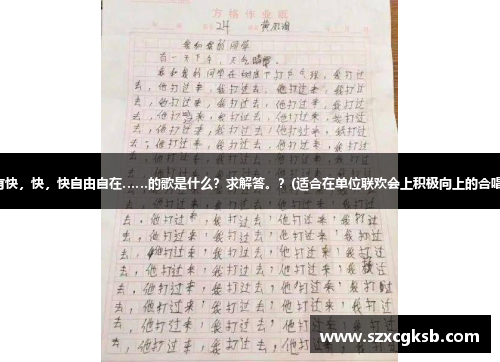 方格作业纸
24
我和我的同学
有一天下午，天气晴朗。
我和我的同学在树底下打乒乓球，我打过
去，他打过来，我打过去，他打过来，我打过
去，他打过来，我打过去，他打过来，我打过
去，他打过来，我打过去，他打过来，我打过
去，他打过来，我打过去，他打过来，我打过
去，他打过来，我打过去，他打过来，我打过
快，快，快自由自在……的歌是什么？求解答。？(适合在单位联欢会上积极向上的合唱
去，他打过来，我打过去，他打过来，我打过
去，他打过来，我打过去，他打过来，我打过
去，他打过来，我打过去，他打过来，我打过
去，他打过来，我打过去，他打过来，我打过
去，他打过来，我打过去，他打过来，我打过
去，他打过来，我打过去，他打过来，我打过
去，他打过来，我打过去，他打过来，我打过
www.szxcgksb.com